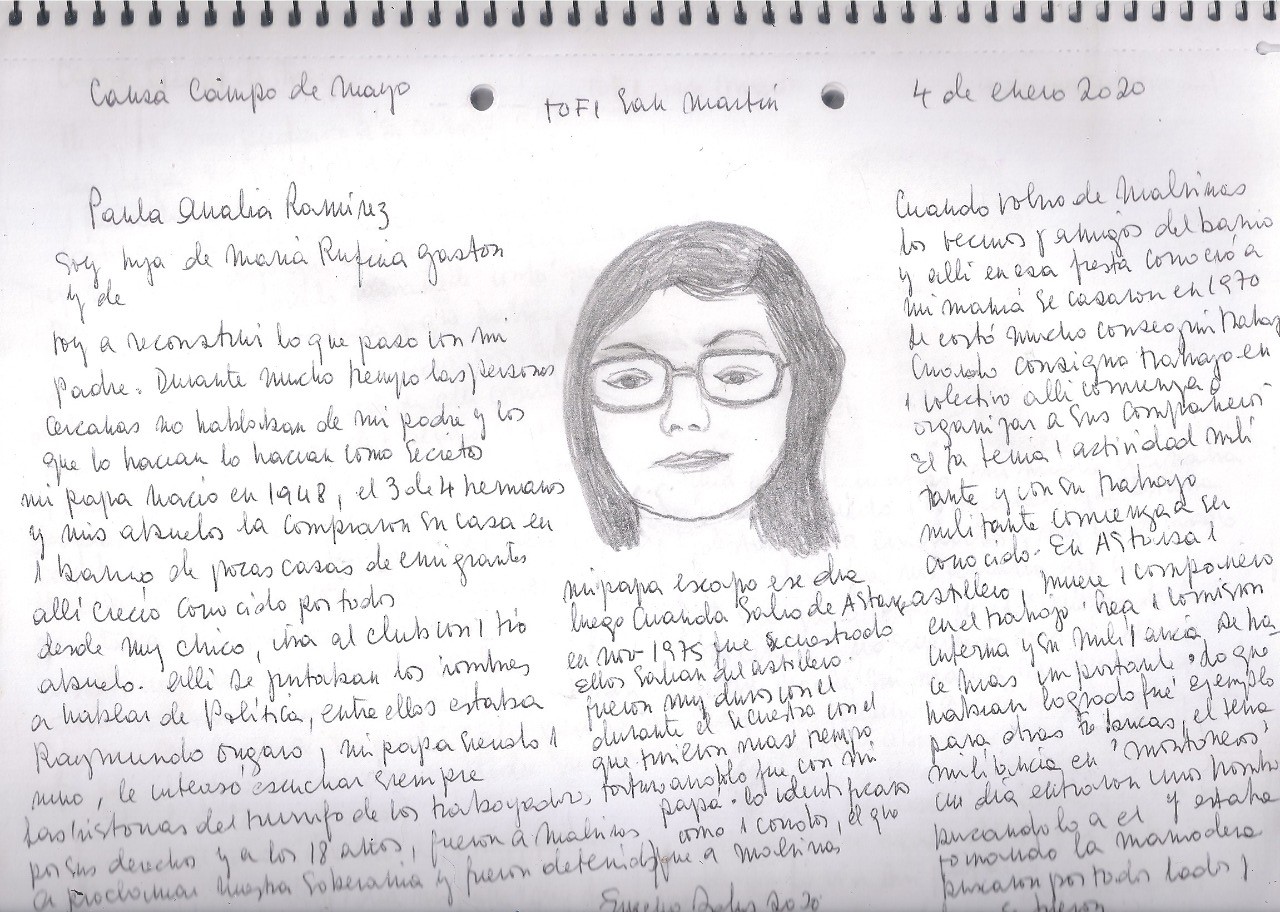 Causa Campo de Mayo
TOF1 San Martín
4 de enero 2020
Paula Analia Ramírez
Soy hija de María Rufina Gaston
y de
voy a reconstruir lo que paso con mi
padre. Durante mucho tiempo las personas
cercanas no hablaban de mi padre y los
que lo hacian lo hacian como secreto
mi papa nacio en 1948, el 3 de 4 hermanos
y mis abuelos la compraron su casa en
1 barrio de pocas casas de emigrantes
alli crecio conocido por todos
desde muy chico, iba al club con 1 tio
abuelo. alli se juntaban los hombres
a hablar de Política, entre ellos estaba
Raymundo Ongaro, mi papa siendo 1
nino, le interesó escuchar siempre
las historias del triunfo de los trabajadores,
por sus derechos y a los 18 años, fueron a Malvinas
a proclamar nuestra Soberania y fueron detenidos
mi papa escapo ese dia
luego cuando salio de Astarsa
en nov 1975 fue secuestrado
Ellos salian del astillero.
fueron muy duros con el
durante el secuestro con el
que tuvieron mas tiempo
torturandolo fue con mi
papá. lo identificaro
como 1 condor, el que
fue a malvinas
2020
Cuando volvio de Malvinas
los vecinos y amigos del barrio
y alli en esa fiesta conoció a
mi mamá se casaron en 1970
le costó mucho conseguir trabajo
Cuando consigue trabajo en
1 colectivo alli comienza a
organizar a sus compañeros
El ya tenia 1 actividad mili
tante y con su trabajo
militante comienza a ser
conocido. En Astarsa 1
astillero, muere 1 companero
en el trabajo. Crea 1 comision
interna y su militancia, se ha
ce mas importante, lo que
habian logrado fué ejemplo
para otras luchas, el tenia
militancia en "montoneros"
un dia entraron unos hombr
buscandolo a el y estaba
tomando la mamadera
buscaron por todos lados 1